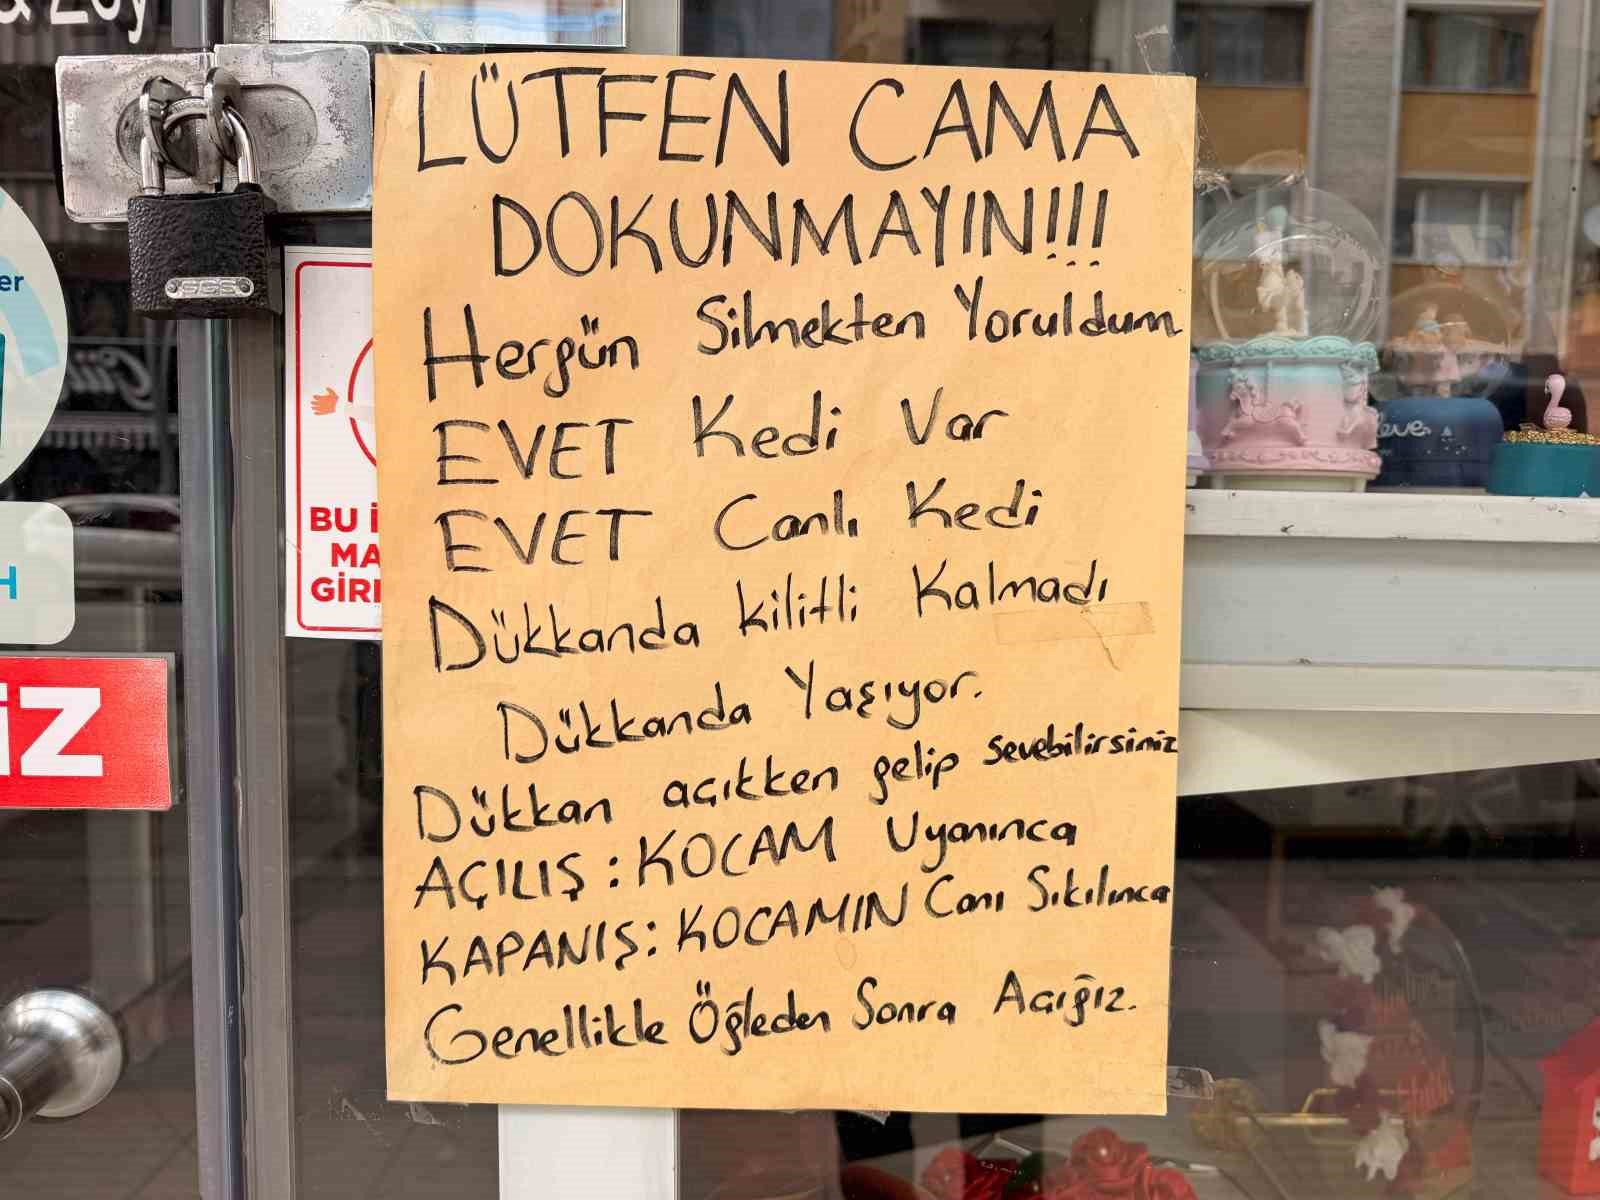 LÜTFEN CAMA
DOKUNMAYIN!!!
Hergün Silmekten Yoruldum
EVET Kedi Var
EVET Canlı Kedi
Dükkanda kilitli Kalmadı
Dükkanda Yaşıyor.
Dükkan açıkken gelip sevebilirsiniz
AÇILIŞ : KOCAM Uyanınca
KAPANIŞ: KOCAMIN Canı Sıkılınca
Genellikle Öğleden Sonra Açığız.
SGS
er
H
BU İ
MA
GİR
İZ